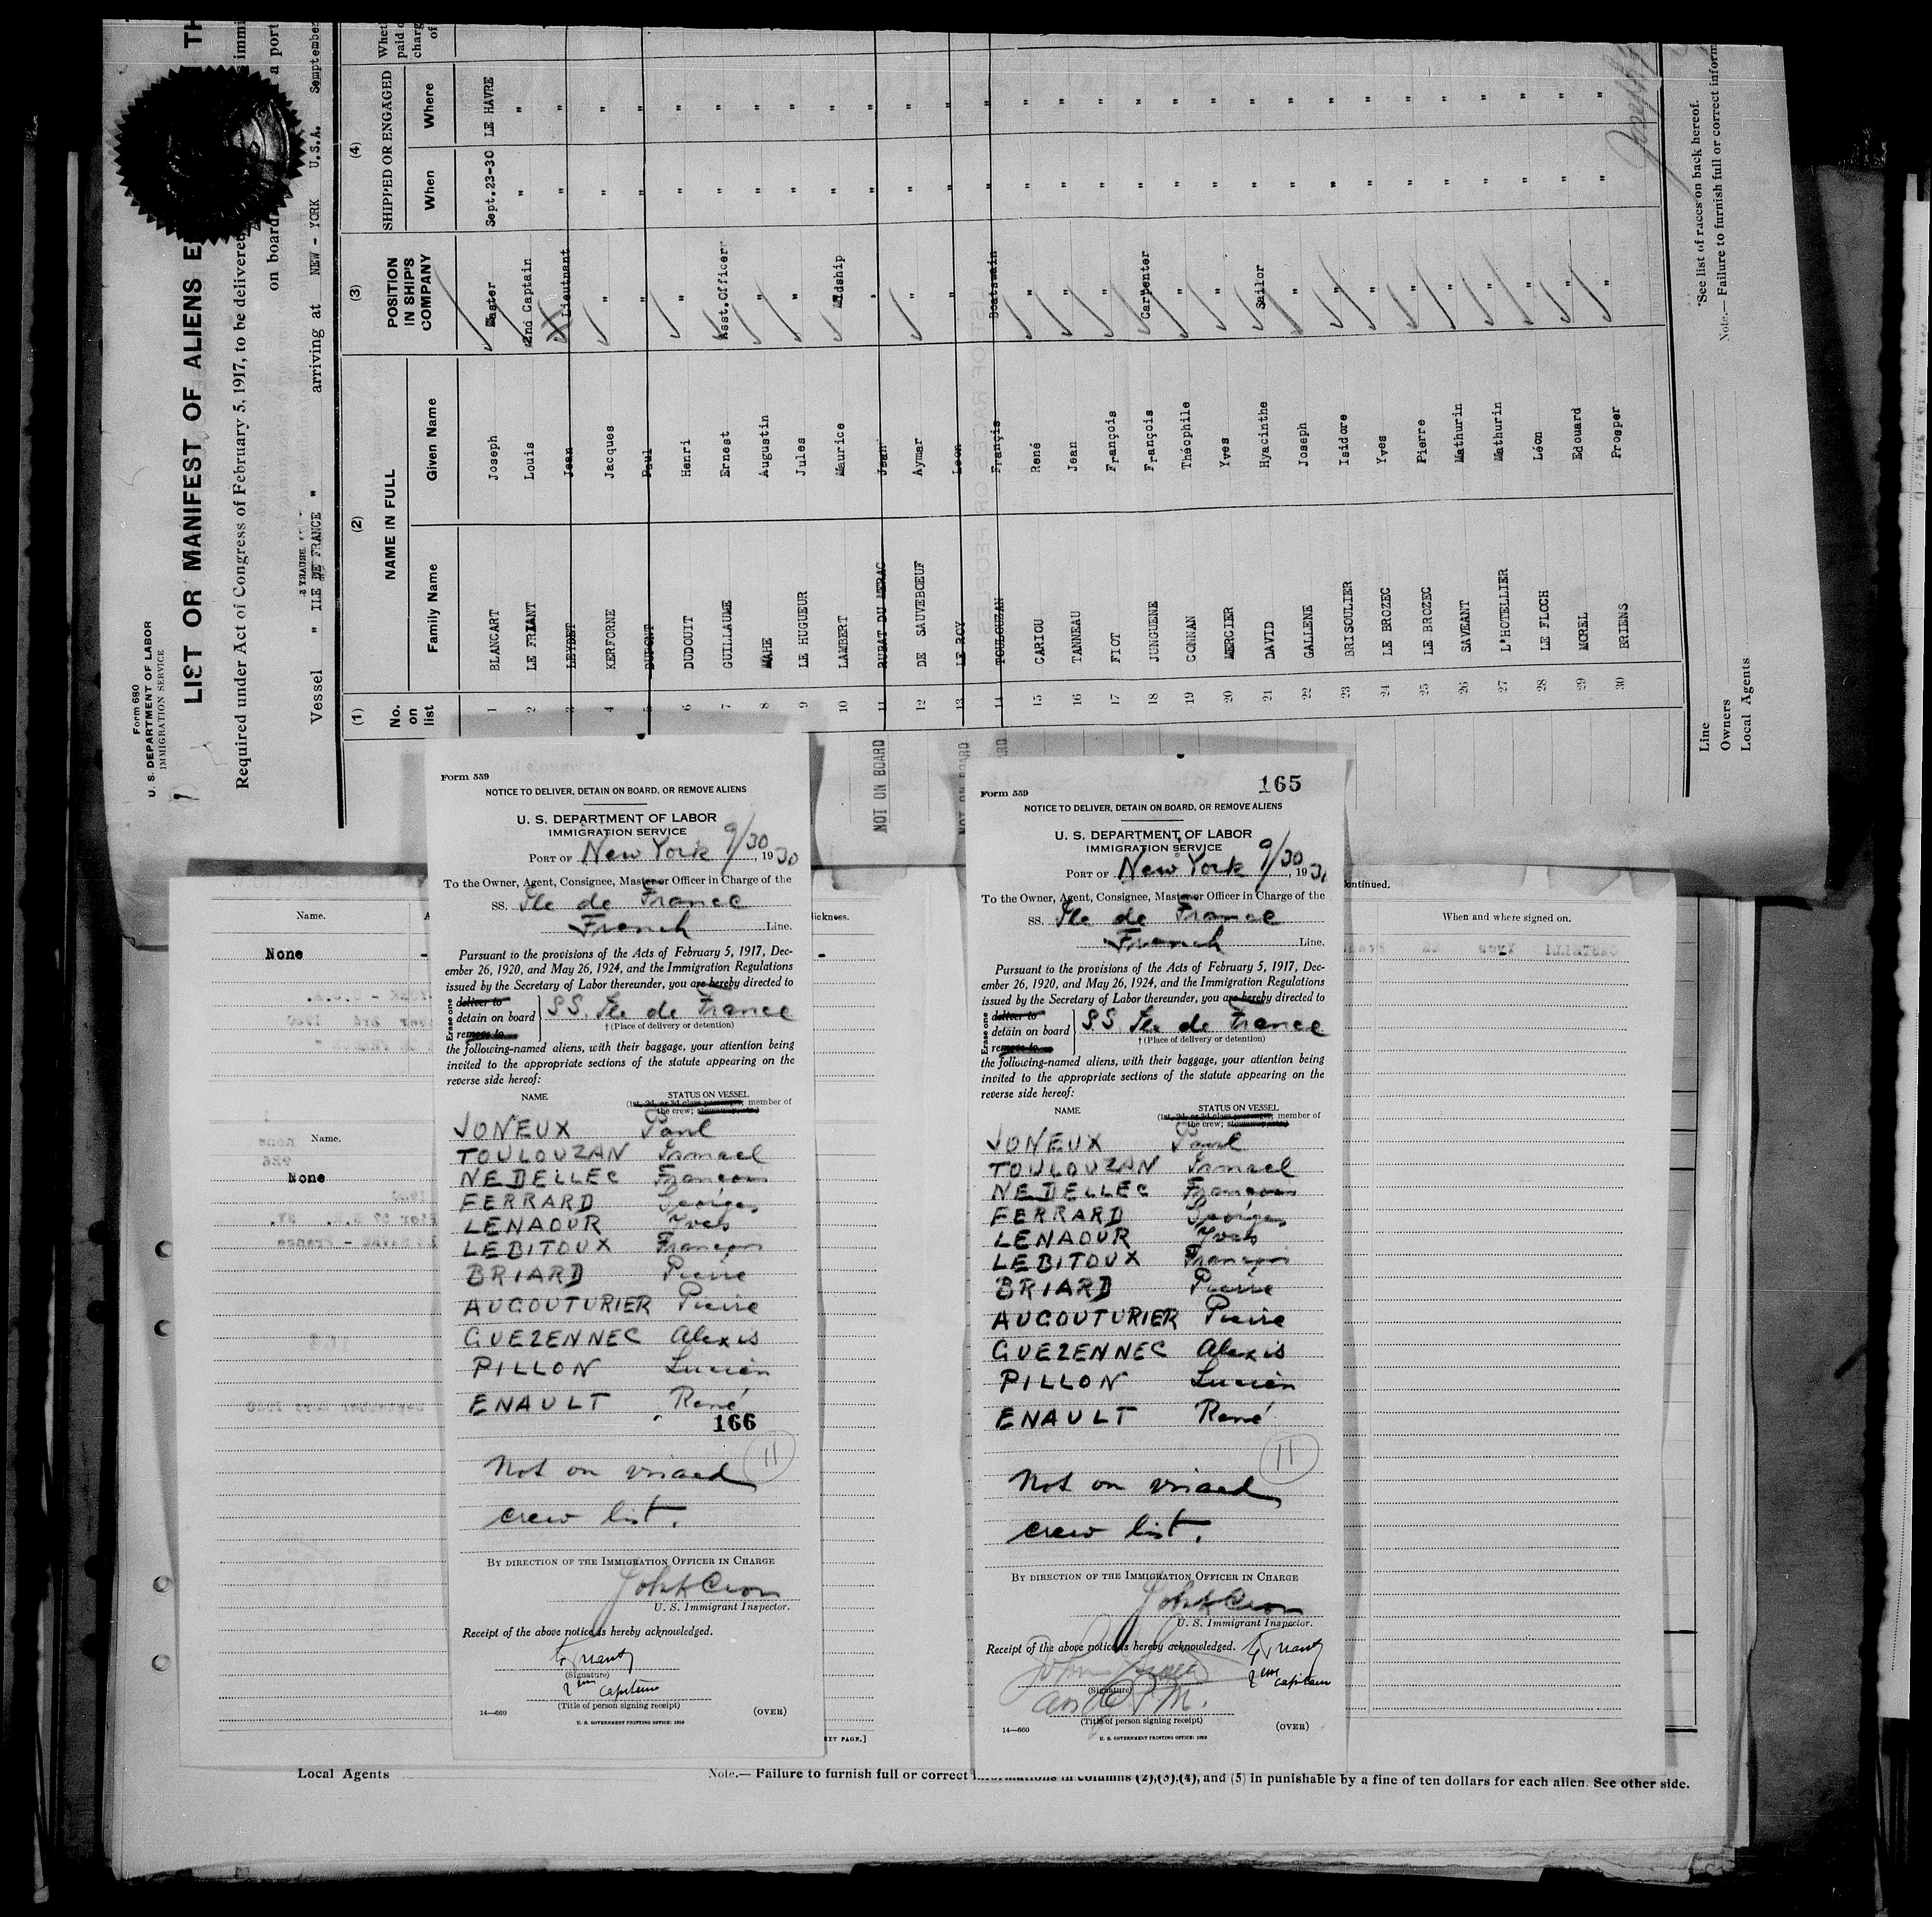 Form 680
U. S. DEPARTMENT OF LABOR
IMMIGRATION SERVICE
LIST OR MANIFEST OF ALIENS E
Required under Act of Congress of February 5, 1917, to be delivered
on board
a port
Vessel " ILE DE FRANCE " arriving at NEW - YORK U.S.A.
(1) (2) (3) (4)
No. on list
NAME IN FULL
Family Name Given Name
POSITION IN SHIP'S COMPANY
SHIPPED OR ENGAGED
When Where
1 BLANCART Joseph Master Sept.23-30 LE HAVRE
2 LE FRIANT Louis 2nd Captain " "
3 LEYDET Jean Lieutenant " "
4 KERFORNE Jacques " " "
5 DUPONT Paul " " "
6 DUDOUIT Henri " " "
7 GUILLAUME Ernest Asst.Officer " "
8 MAHE Augustin " " "
9 LE HUGUEUR Jules " " "
10 LAMBERT Maurice Midship " "
11 RUBAT DU MERAC Jean " " "
12 DE SAUVEBŒUF Aymar " " "
13 LE ROY Leon " " "
14 TOULOUZAN Françis Boatswain " "
15 CARIOU René " " "
16 TANNEAU Jean " " "
17 FIOT François " " "
18 JUNGUENE François Carpenter " "
19 CONNAN Théophile " " "
20 MERCIER Yves " " "
21 DAVID Hyacinthe Sailor " "
22 GALLENE Joseph " " "
23 BRISOULIER Isidore " " "
24 LE BROZEC Yves " " "
25 LE BROZEC Pierre " " "
26 SAVEANT Mathurin " " "
27 L'HOTELLIER Mathurin " " "
28 LE FLOCH Léon " " "
29 MOREL Edouard " " "
30 BRIENS Prosper " " "
NOT ON BOARD
Line
Owners
Local Agents
*See list of races on back hereof.
Note.— Failure to furnish full or correct inform
Joseph
Form 559
NOTICE TO DELIVER, DETAIN ON BOARD, OR REMOVE ALIENS
U. S. DEPARTMENT OF LABOR
IMMIGRATION SERVICE
PORT OF New York 9/30, 1930
To the Owner, Agent, Consignee, Master or Officer in Charge of the
SS. Ile de France
French Line.
Pursuant to the provisions of the Acts of February 5, 1917, Dec-
ember 26, 1920, and May 26, 1924, and the Immigration Regulations
issued by the Secretary of Labor thereunder, you are hereby directed to
Erase one
deliver to
detain on board SS. Ile de France
remove to
† (Place of delivery or detention)
the following-named aliens, with their baggage, your attention being
invited to the appropriate sections of the statute appearing on the
reverse side hereof:
NAME STATUS ON VESSEL
(1st, 2d, or 3d class passenger, member of
the crew; stowaway, etc.)
JONEUX Paul
TOULOUZAN
NEDELLEC François
FERRARD Georges
LENAOUR Yves
LEBITOUX François
BRIARD Pierre
AUCOUTURIER Pierre
GUEZENNEC Alexis
PILLON Lucien
ENAULT René
166
11
Not on visaed
crew list.
BY DIRECTION OF THE IMMIGRATION OFFICER IN CHARGE
U. S. Immigrant Inspector.
Receipt of the above notice is hereby acknowledged.
(Signature)
2eme Capitaine
(Title of person signing receipt)
14—660 (OVER)
U. S. GOVERNMENT PRINTING OFFICE: 1929
165
Form 559
NOTICE TO DELIVER, DETAIN ON BOARD, OR REMOVE ALIENS
U. S. DEPARTMENT OF LABOR
IMMIGRATION SERVICE
PORT OF New York 9/30, 193
To the Owner, Agent, Consignee, Master or Officer in Charge of the
SS. Ile de France
French Line.
Pursuant to the provisions of the Acts of February 5, 1917, Dec-
ember 26, 1920, and May 26, 1924, and the Immigration Regulations
issued by the Secretary of Labor thereunder, you are hereby directed to
Erase one
deliver to
detain on board SS. Ile de France
remove to
† (Place of delivery or detention)
the following-named aliens, with their baggage, your attention being
invited to the appropriate sections of the statute appearing on the
reverse side hereof:
NAME STATUS ON VESSEL
(1st, 2d, or 3d class passenger, member of
the crew; stowaway, etc.)
JONEUX Paul
TOULOUZAN
NEDELLEC François
FERRARD Georges
LENAOUR Yves
LEBITOUX François
BRIARD Pierre
AUCOUTURIER Pierre
GUEZENNEC Alexis
PILLON Lucien
ENAULT René
11
Not on visaed
crew list.
BY DIRECTION OF THE IMMIGRATION OFFICER IN CHARGE
U. S. Immigrant Inspector.
Receipt of the above notice is hereby acknowledged.
2eme Capitaine
(Signature)
(Title of person signing receipt)
14—660 (OVER)
U. S. GOVERNMENT PRINTING OFFICE: 1929
Name.
None
Name.
None
When and where signed on.
Local Agents
Note.— Failure to furnish full or correct informations in columns (2),(3),(4), and (5) in punishable by a fine of ten dollars for each alien. See other side.